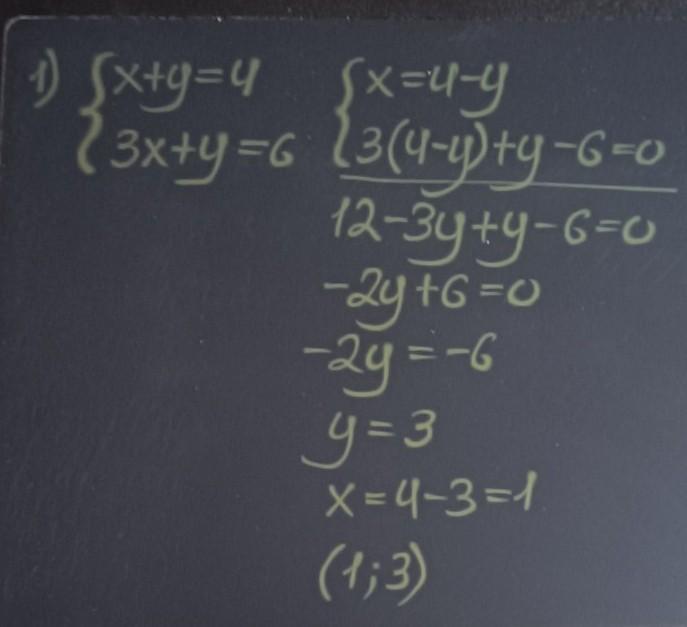 1) {x+y=4 {x=4-y
3x+y=6 3(4-y)+y-6=0
12-3y+y-6=0
-2y+6=0
-2y=-6
y=3
x=4-3=1
(1;3)